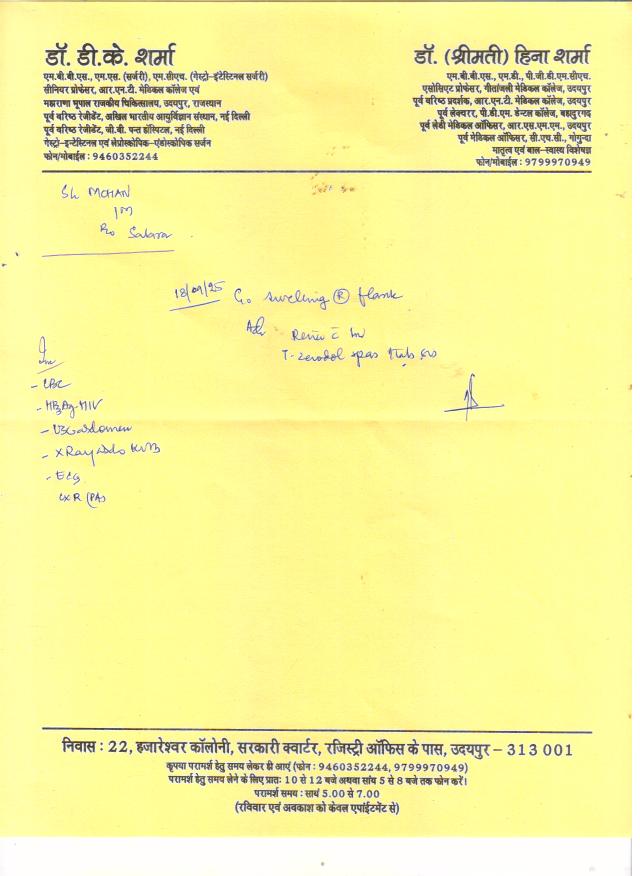 डॉ. डी.के. शर्मा
एम.बी.बी.एस., एम.एस. (सर्जरी), एम.सीएच. (गेस्ट्रो-इंटेस्टिनल सर्जरी)
सीनियर प्रोफेसर, आर.एन.टी. मेडिकल कॉलेज एवं
महाराणा भूपाल राजकीय चिकित्सालय, उदयपुर, राजस्थान
पूर्व वरिष्ठ रेजीडेंट, अखिल भारतीय आयुर्विज्ञान संस्थान, नई दिल्ली
पूर्व वरिष्ठ रेजीडेंट, जी.बी. पन्त हॉस्पिटल, नई दिल्ली
गेस्ट्रो-इन्टेस्टिनल एवं लेप्रोस्कोपिक-एंडोस्कोपिक सर्जन
फोन/मोबाईल : 9460352244
डॉ. (श्रीमती) हिना शर्मा
एम.बी.बी.एस., एम.डी., पी.जी.डी.एम.सीएच.
एसोसिएट प्रोफेसर, गीतांजली मेडिकल कॉलेज, उदयपुर
पूर्व वरिष्ठ प्रदर्शक, आर.एन.टी. मेडिकल कॉलेज, उदयपुर
पूर्व लेक्चरर, पी.डी.एम. डेन्टल कॉलेज, बहादुरगढ़
पूर्व लेडी मेडिकल ऑफिसर, आर.एस.एम.एम., उदयपुर
पूर्व मेडिकल ऑफिसर, सी.एच.सी., गोगुन्दा
मातृत्व एवं बाल-स्वास्थ्य विशेषज्ञ
फोन/मोबाईल : 9799970949
Sh MOHAN
R/o
18/09/25 C/o swelling (R) flank
Adv
T-zerodol spas
Inv
- CBC
- HBsAg-HIV
- USG abdomen
- XRay abdo KUB
- ECG
CXR (PA)
निवास : 22, हजारेश्वर कॉलोनी, सरकारी क्वार्टर, रजिस्ट्री ऑफिस के पास, उदयपुर – 313 001
कृपया परामर्श हेतु समय लेकर ही आएं (फोन : 9460352244, 9799970949)
परामर्श हेतु समय लेने के लिए प्रातः 10 से 12 बजे अथवा सांय 5 से 8 बजे तक फोन करें।
परामर्श समय : सायं 5.00 से 7.00
(रविवार एवं अवकाश को केवल एपांईटमेंट से)